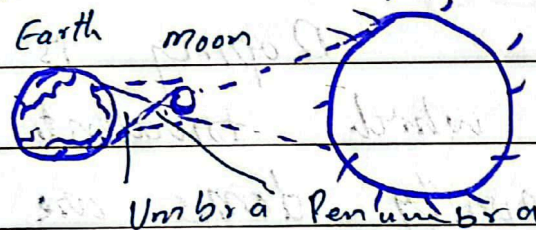 Earth Moon
Umbra Penumbra